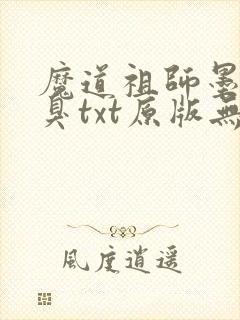 魔道祖師墨
臭txt原版無
風度逍遥